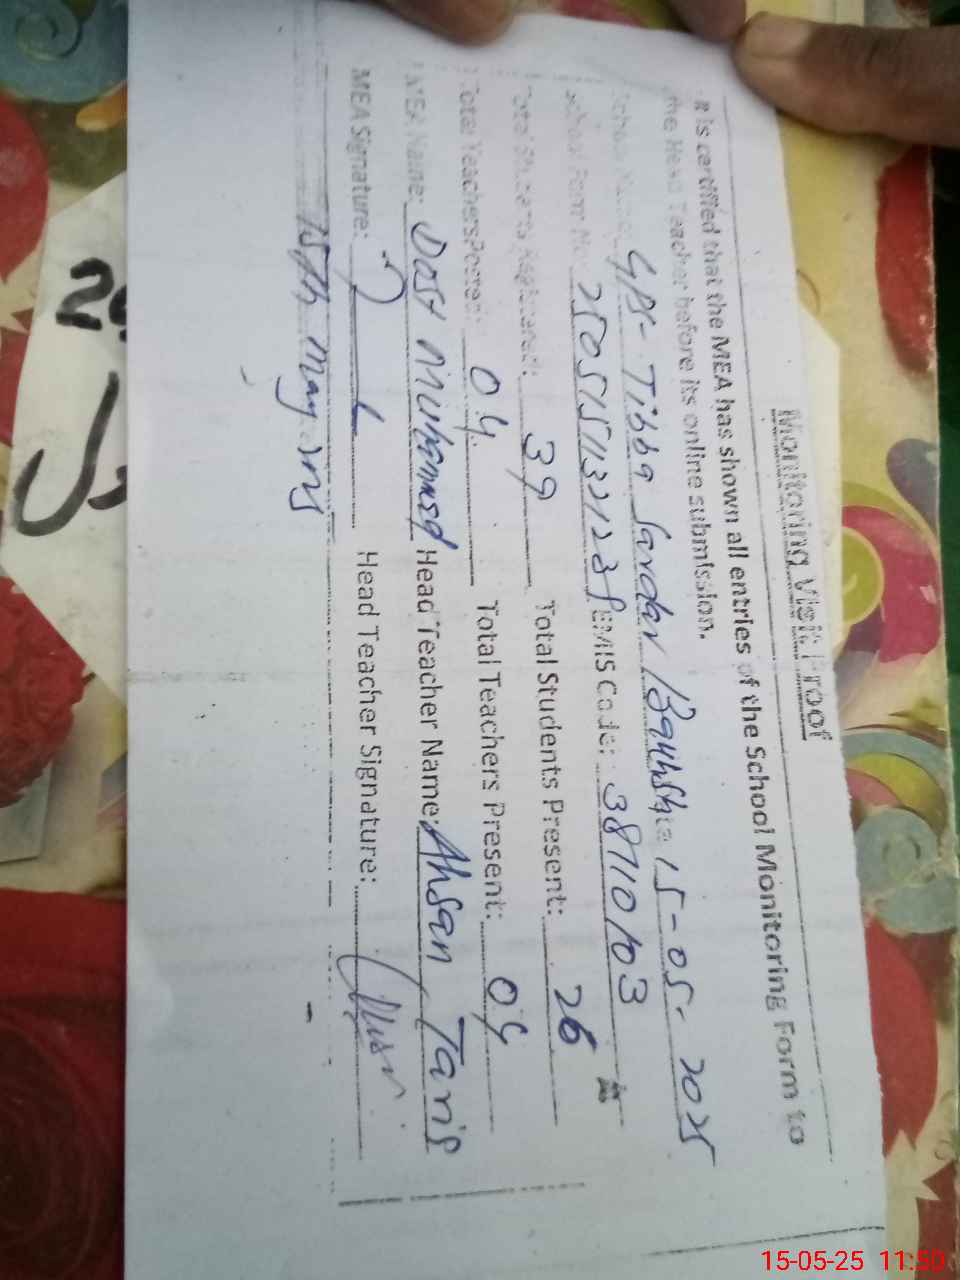 Monitoring Visit Proof
It is certified that the MEA has shown all entries of the School Monitoring Form to
the Head Teacher before its online submission.
School Name: GPS- Tibba Sardar Bakhsh Date 15-05-2025
School Form No: EMIS Code: 38710103
Total Students Registered: 39 Total Students Present: 26
Total Teachers Posted: 04 Total Teachers Present: 04
MEA Name: Dost Muhammad Head Teacher Name: Ahsan Taris
MEA Signature: Head Teacher Signature:
15th may
15-05-25 11:50